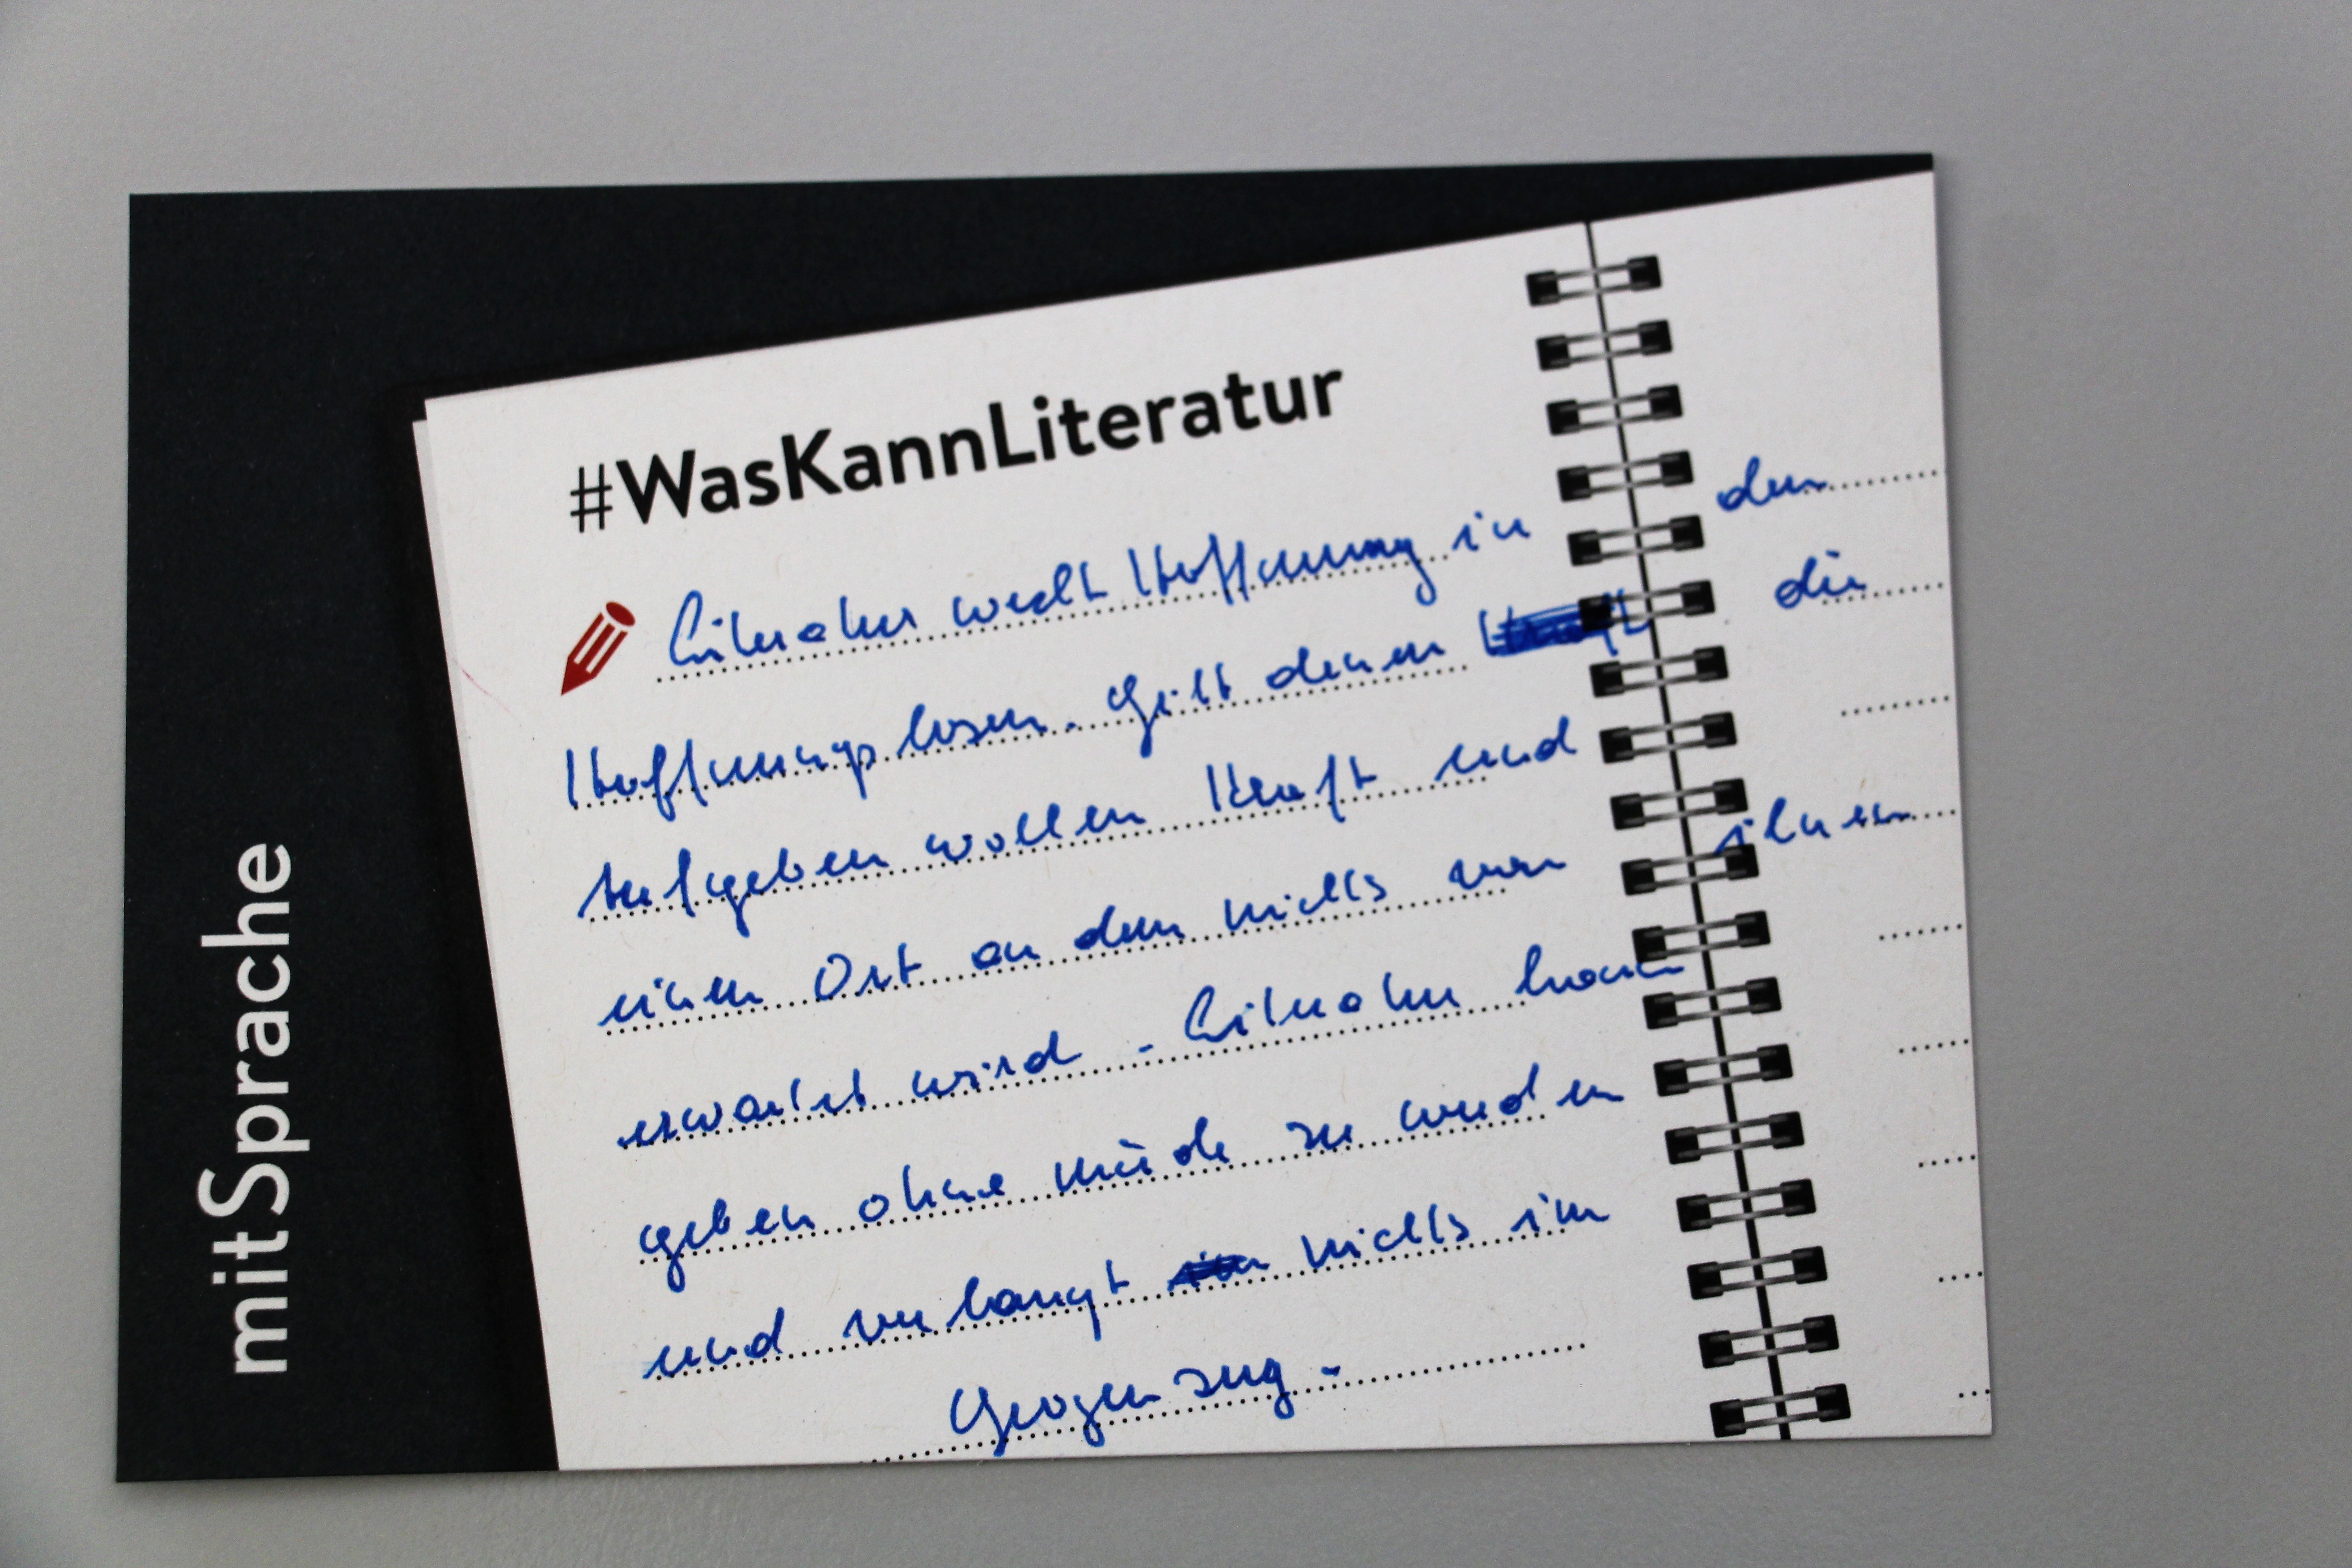 mitSprache
#WasKannLiteratur
Literatur weckt Hoffnung in den
Hoffnungslosen. Gibt denen die
Aufgeben wollen Kraft und
einen Ort an dem nichts von ihnen
erwartet wird. Literatur kann
geben ohne müde zu werden
und verlangt nichts im
Gegenzug.